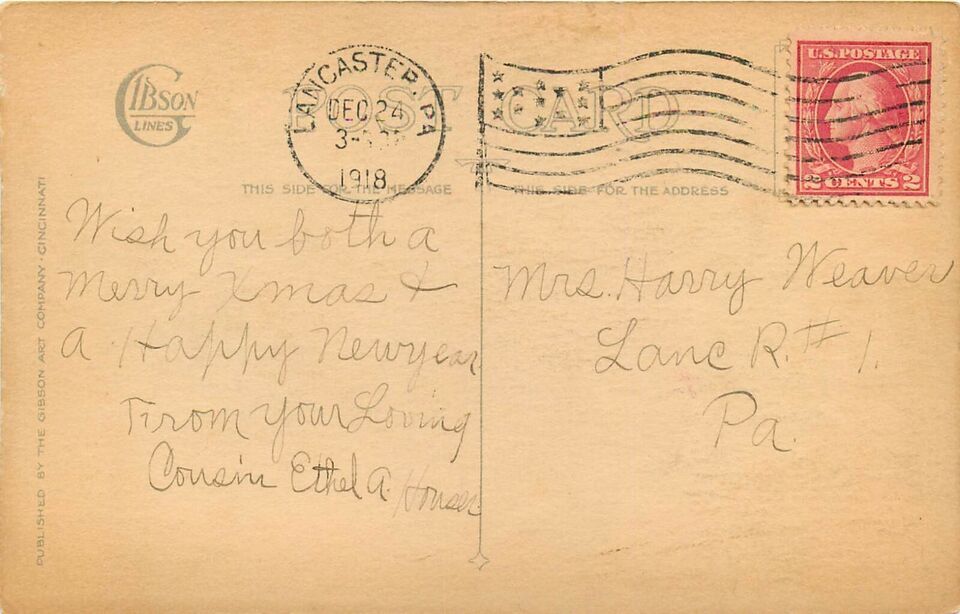 GIBSON
LINES
POST CARD
LANCASTER, PA
DEC 24
1918
U.S. POSTAGE
2 CENTS 2
THIS SIDE FOR THE MESSAGE
THIS SIDE FOR THE ADDRESS
PUBLISHED BY THE GIBSON ART COMPANY · CINCINNATI
Wish you both a
Merry Xmas &
a Happy Newyear
From your Loving
Cousin Ethel A. Houser
Mrs. Harry Weaver
Lanc R. # 1.
Pa.